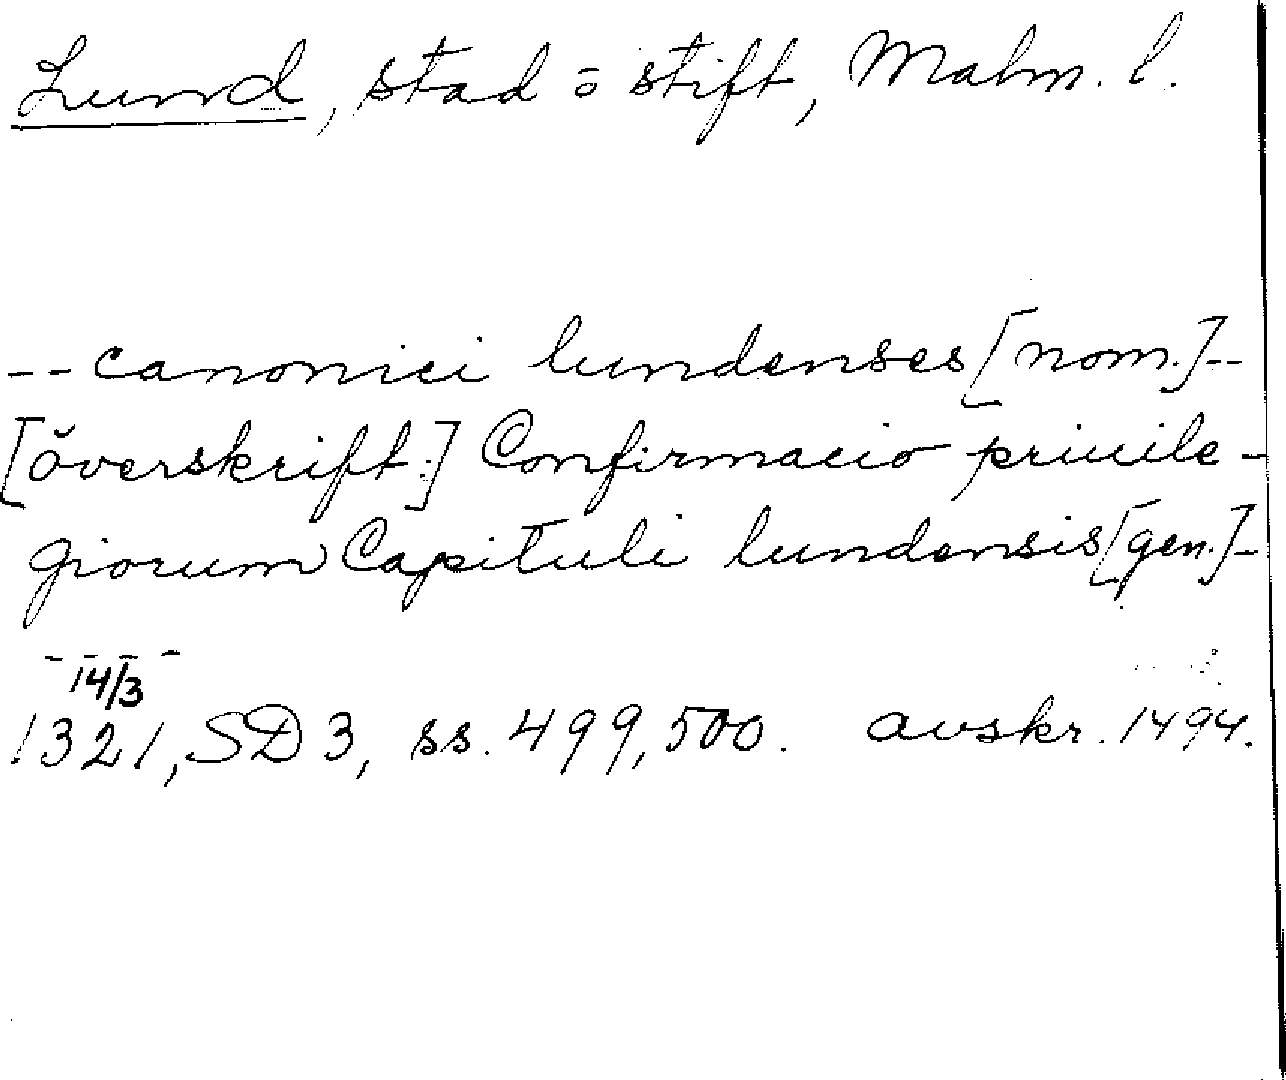 Lund, stad o stift, Malm. l.
-- canonici lundenses [nom.] --
[överskrift:] Confirmacio priuile-
giorum Capituli lundensis [gen.] -
- - - -
14/3
1321, SD 3, ss. 499, 500. avskr. 1494.